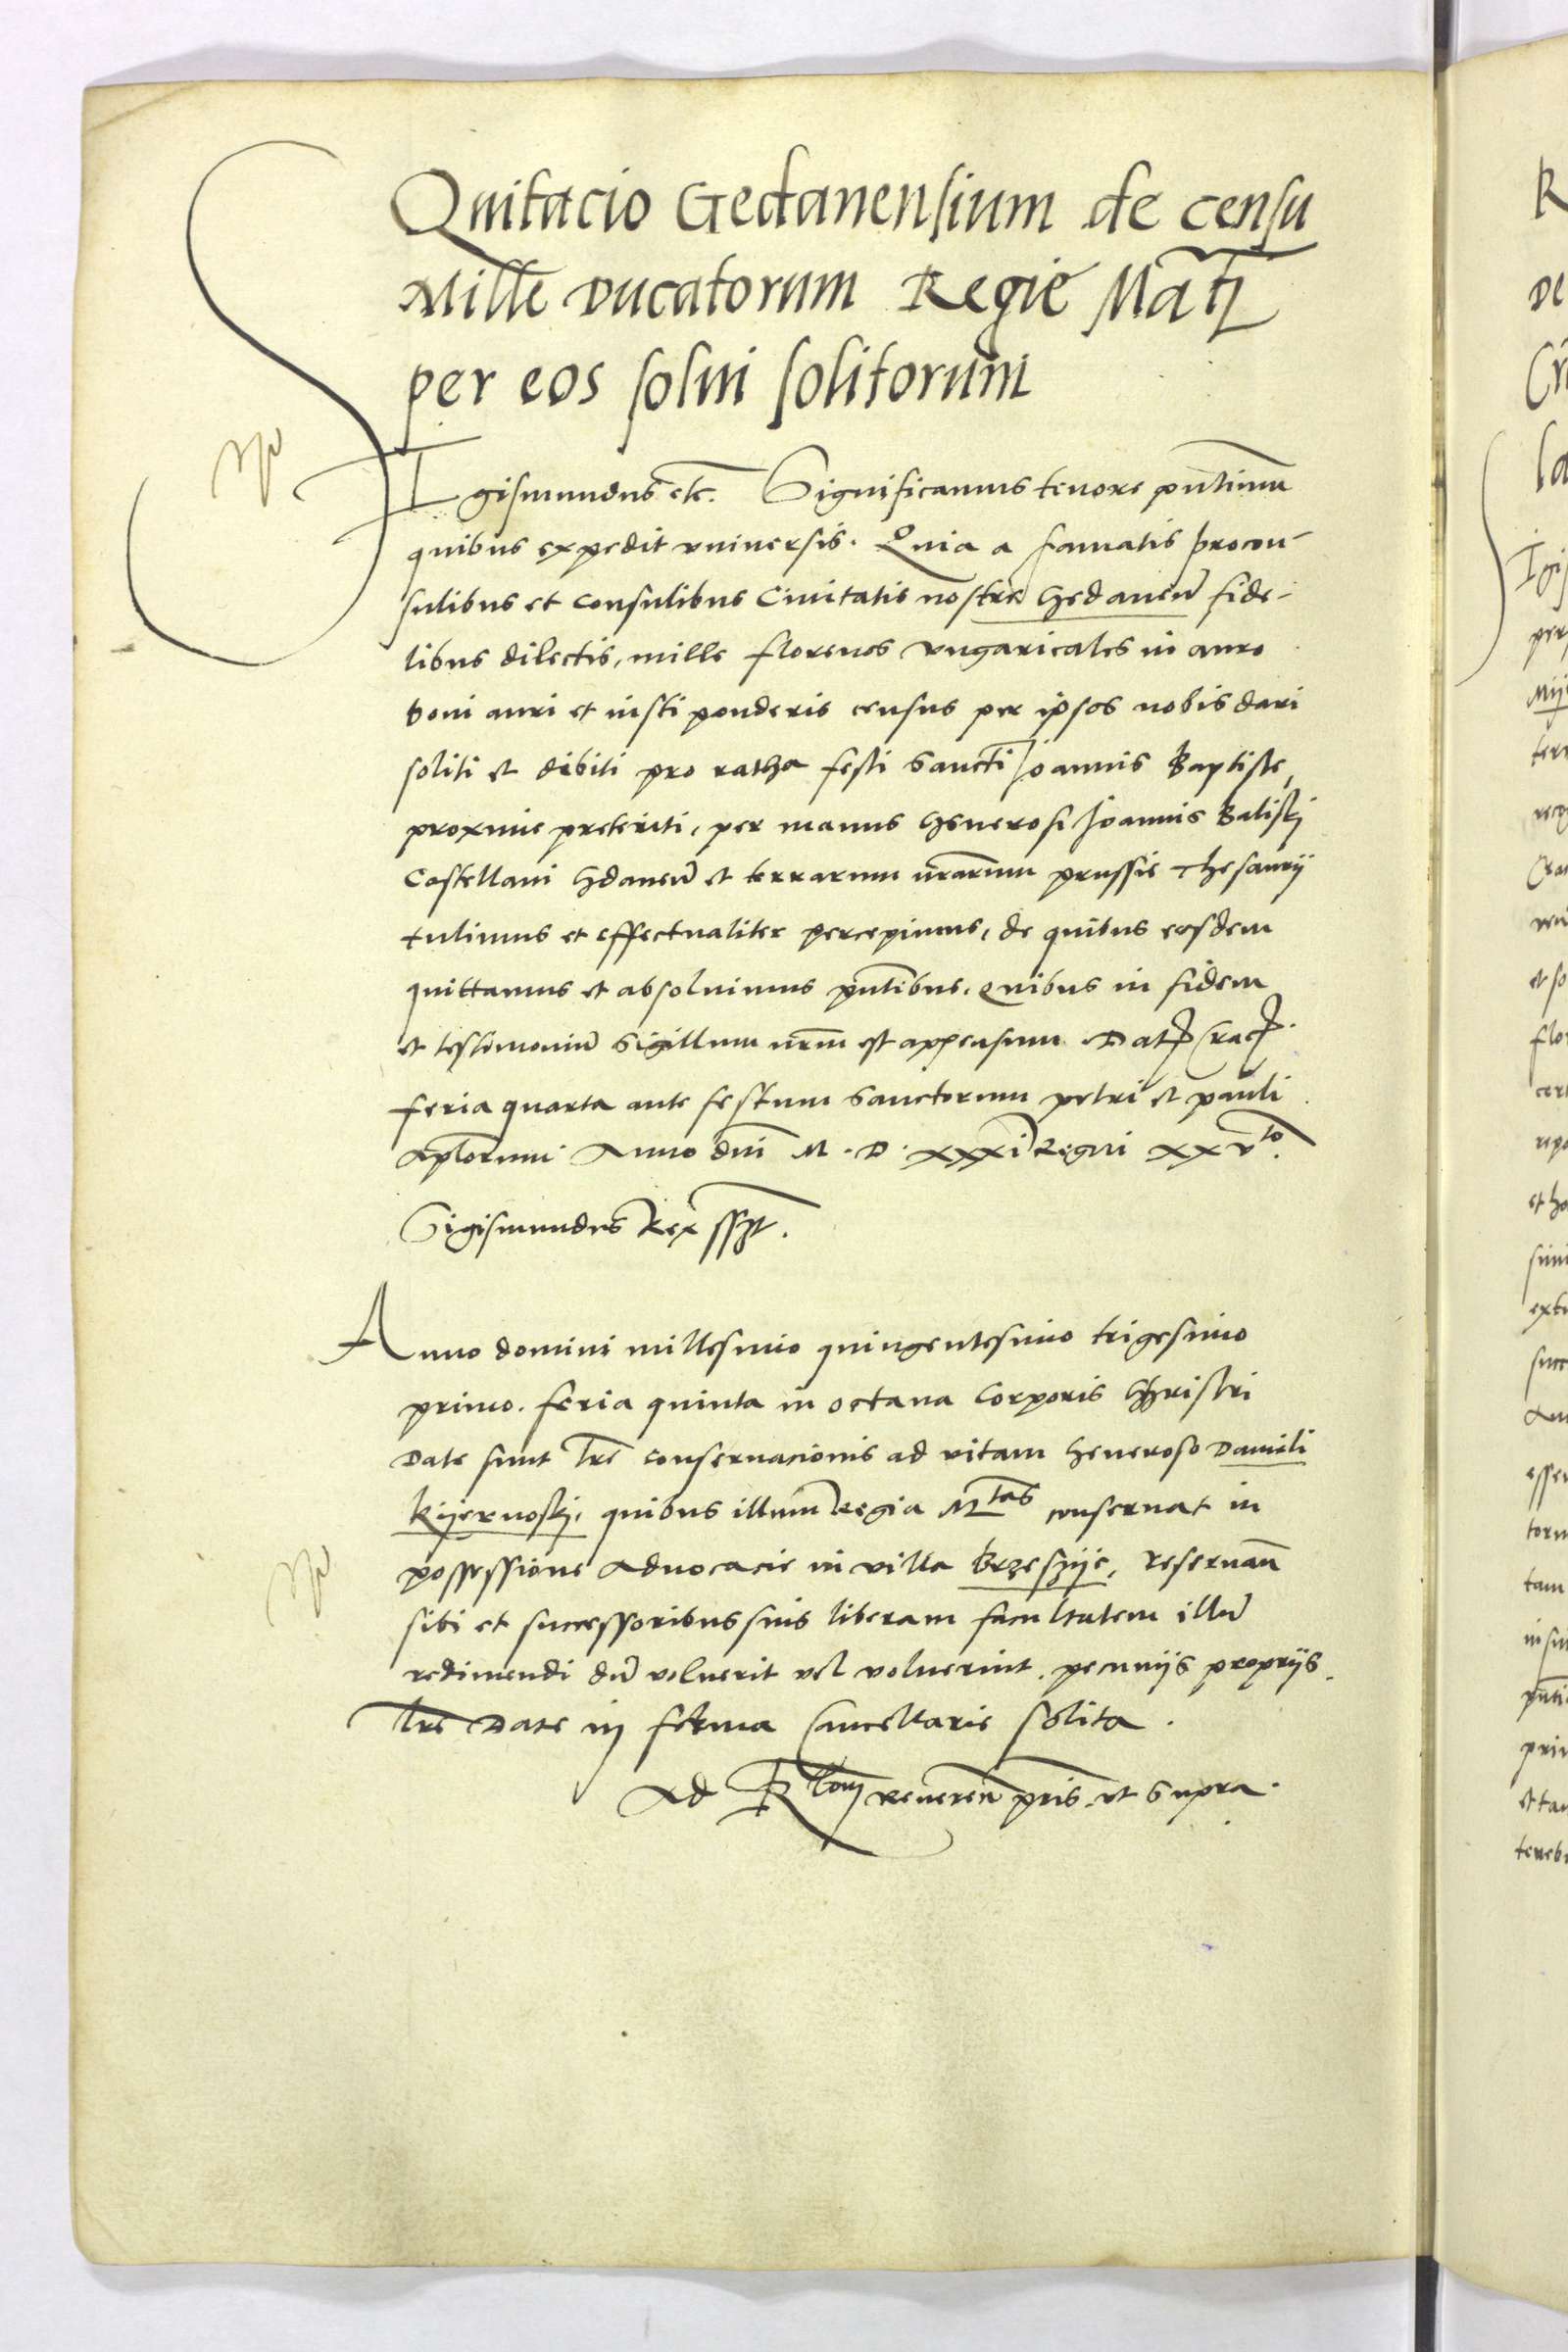 Quitacio Gedanensium de censu
Mille Ducatorum Regie Matis
per eos solui solitorum
SIgismundus etc. Significamus tenore pntium
quibus expedit vniuersis. Quia a famatis procon-
sulibus et consulibus Ciuitatis nostre Gedanen fide-
libus dilectis, mille florenos vngaricales in auro
boni auri et iusti ponderis census per ipsos nobis dari
soliti et debiti pro ratha festi sancti Joannis Baptiste,
proxime preteriti, per manus Generosi Joannis Baliski
Castellani Gdanen et terrarum nrarum prussie Thesaurij
tulimus et effectualiter percepimus, de quibus eosdem
quittamus et absoluimus pntibus. Quibus in fidem
et testimoniu sigillum nrm est appensum Dat Crac.
feria quarta ante festum sanctorum petri et pauli
Aplorum Anno dni M. D. xxxi Regni xxvto.
Sigismundus Rex sspt.
Anno domini millesimo quingentesimo trigesimo
primo. feria quinta in octaua Corporis Christi
Date sunt lre conseruacionis ad vitam Generoso Danieli
Kijernoskj, quibus illum Regia Mtas conseruat in
possessione Aduocacie in villa Brzeszije, reseruan
sibi et successoribus suis liberam facultatem illu
redimendi du voluerit vel voluerint, pecunijs proprijs.
Lre Date in forma Cancellarie solita.
Ad Rlom Reueren pris vt supra.